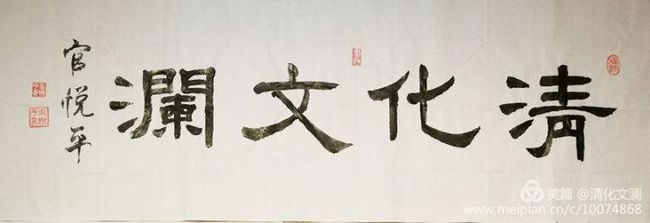 清化文瀾
官悦平
美篇 @清化文澜
www.meipian.cn/c/10074868